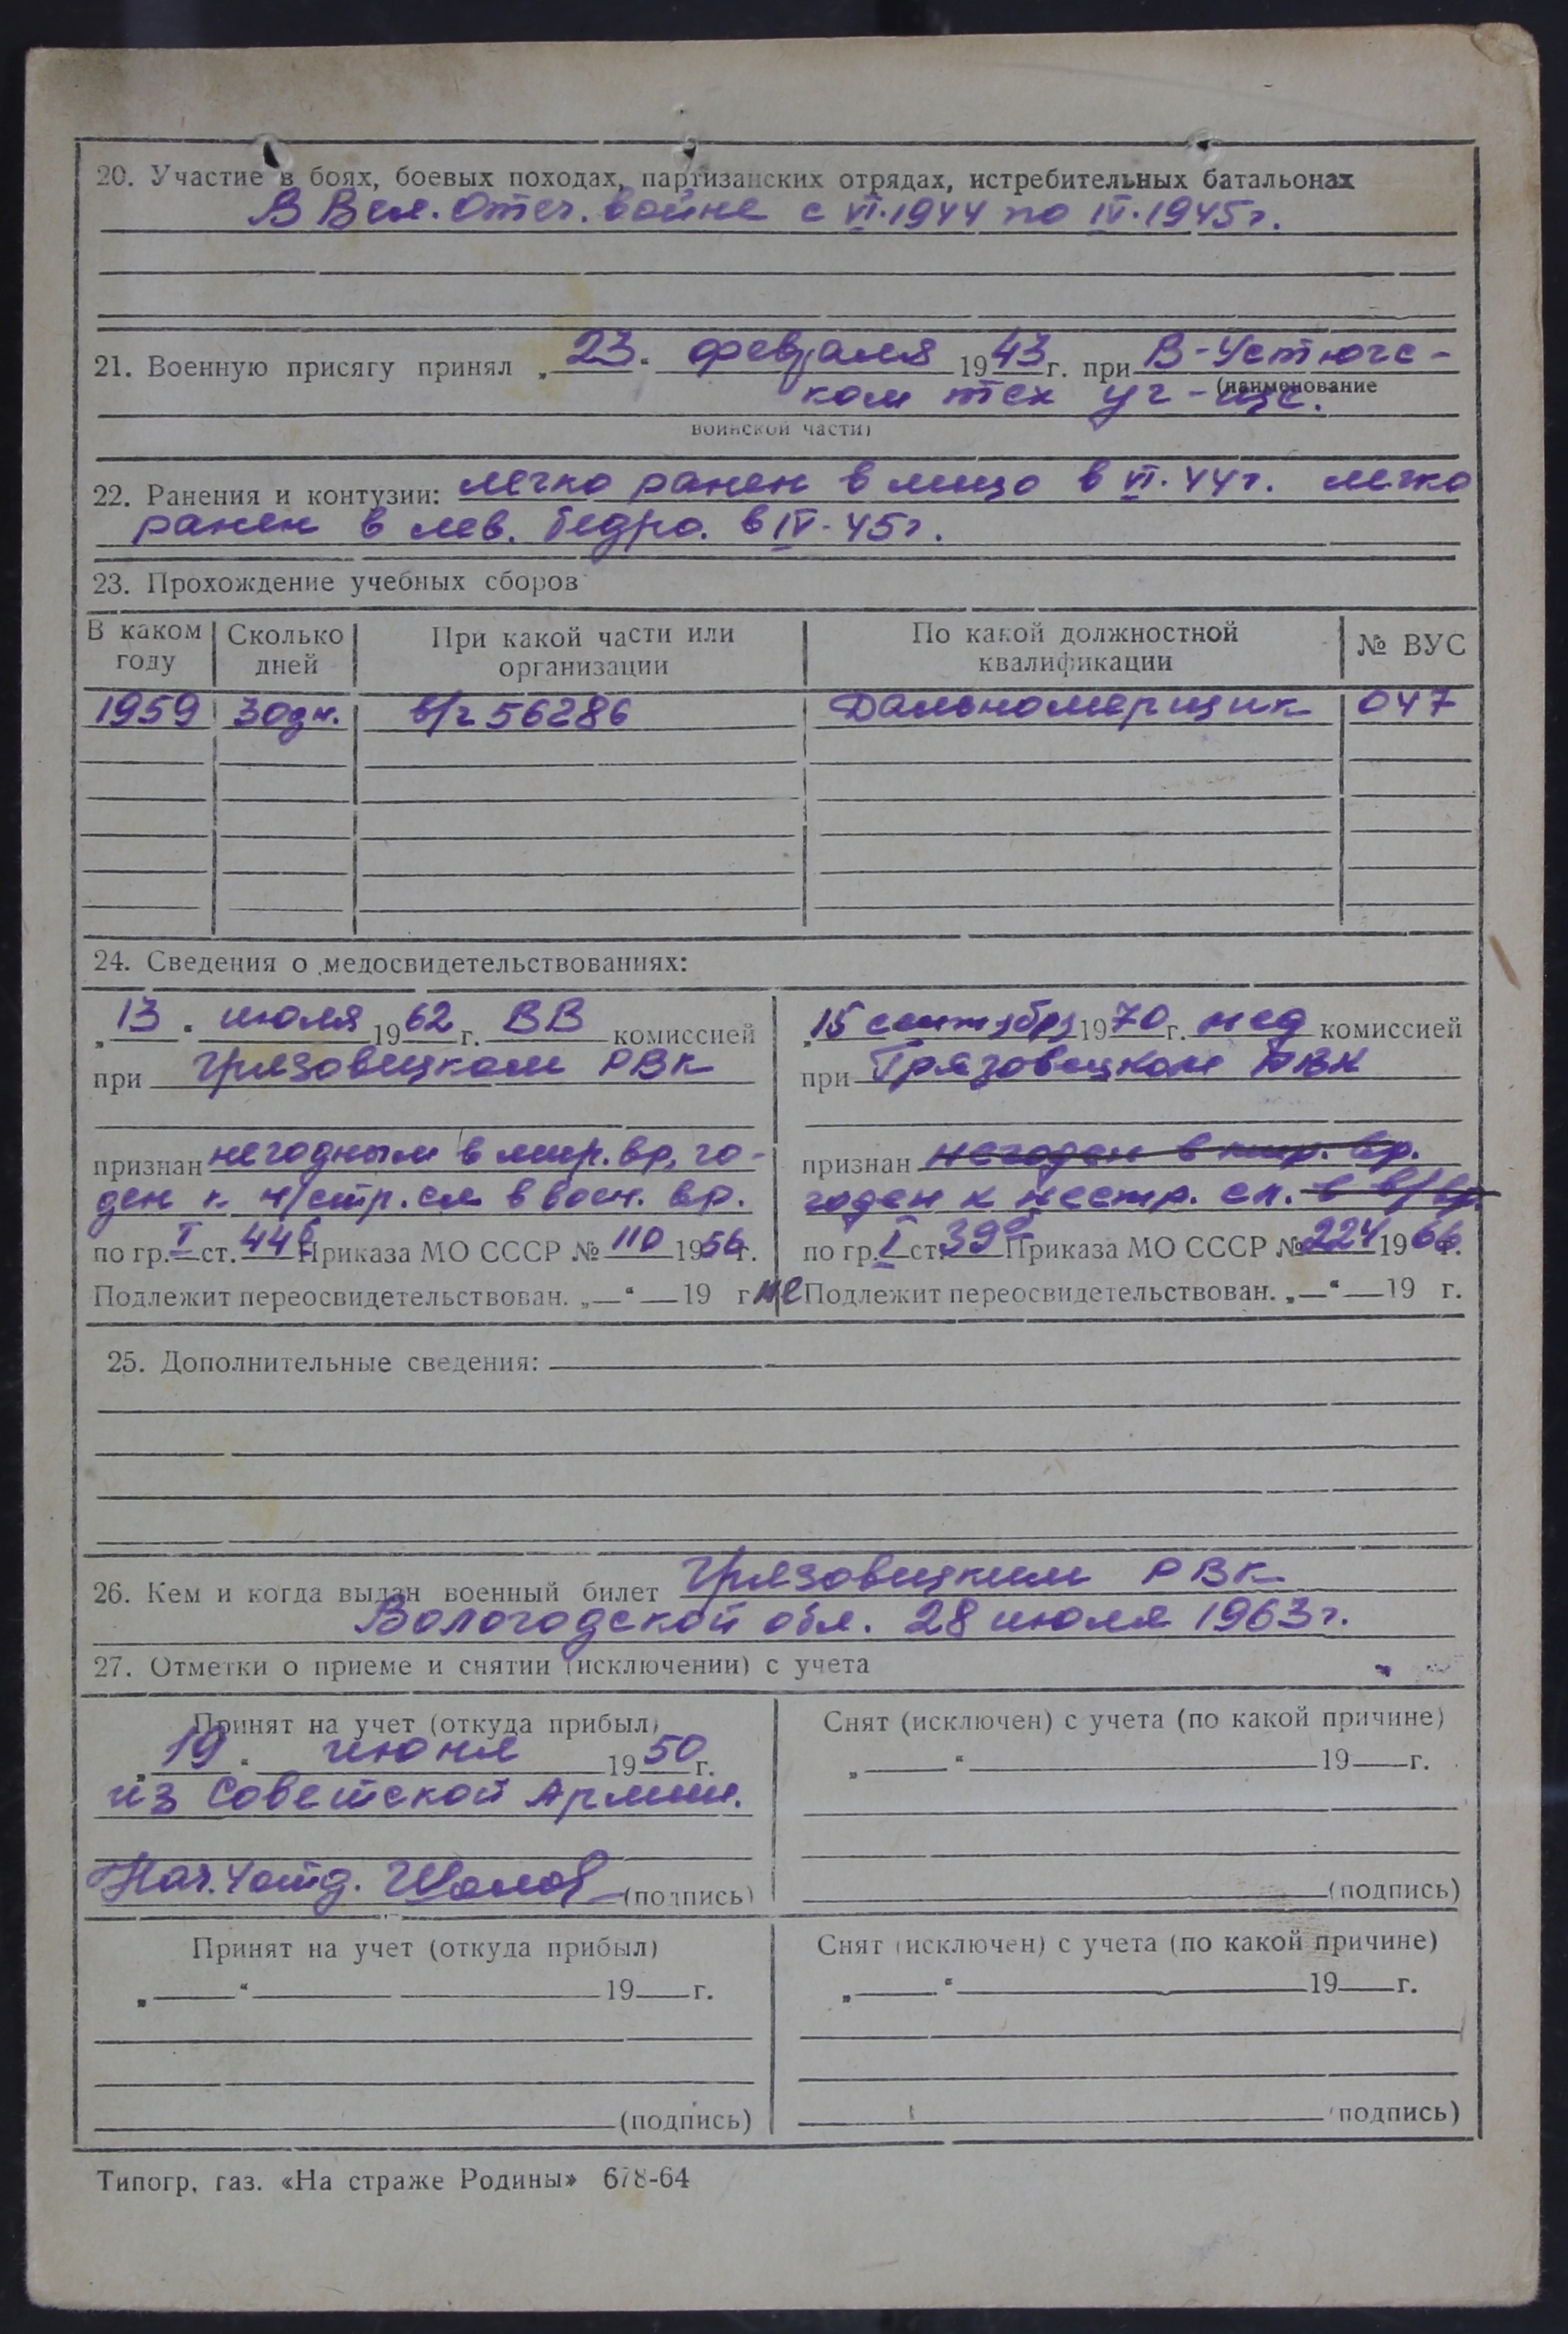 20. Участие в боях, боевых походах, партизанских отрядах, истребительных батальонах
В Вел. Отеч. войне с VI.1944 по IV.1945г.
21. Военную присягу принял „23“ февраля 1943г. при В-Устюгс-
(наименование
ком тех уч-ще.
воинской части)
22. Ранения и контузии: легко ранен в лицо в VI.44г. легко
ранен в лев. бедро. в IV-45г.
23. Прохождение учебных сборов
В каком году | Сколько дней | При какой части или организации | По какой должностной квалификации | № ВУС
1959 | 30дн. | в/ч 56286 | Дальномерщик | 047
24. Сведения о медосвидетельствованиях:
„13“ июля 1962г. ВВ комиссией
при Грязовецком РВК
признан негодным в мир. вр, го-
ден к н/стр. сл в воен. вр.
по гр. I ст. 44б Приказа МО СССР № 110 1956г.
Подлежит переосвидетельствован. „—“ — 19 г.
„15 сентября 1970г. мед комиссией
при Грязовецком РВК
признан негоден в мир. вр.
годен к нестр. сл. в в/вр.
по гр. I ст. 39 Приказа МО СССР № 224 1966г.
не Подлежит переосвидетельствован. „—“ — 19 г.
25. Дополнительные сведения:
26. Кем и когда выдан военный билет Грязовецким РВК
Вологодской обл. 28 июля 1963г.
27. Отметки о приеме и снятии (исключении) с учета
Принят на учет (откуда прибыл)
„19“ июня 1950г.
из Советской Армии.
Нач. 4 отд. (подпись)
Снят (исключен) с учета (по какой причине)
„ “ 19 г.
(подпись)
Принят на учет (откуда прибыл)
„ “ 19 г.
(подпись)
Снят (исключен) с учета (по какой причине)
„ “ 19 г.
(подпись)
Типогр. газ. «На страже Родины» 678-64